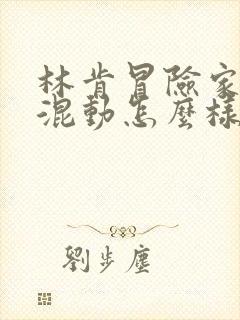 林肯冒險家
混動怎麼樣
劉步塵